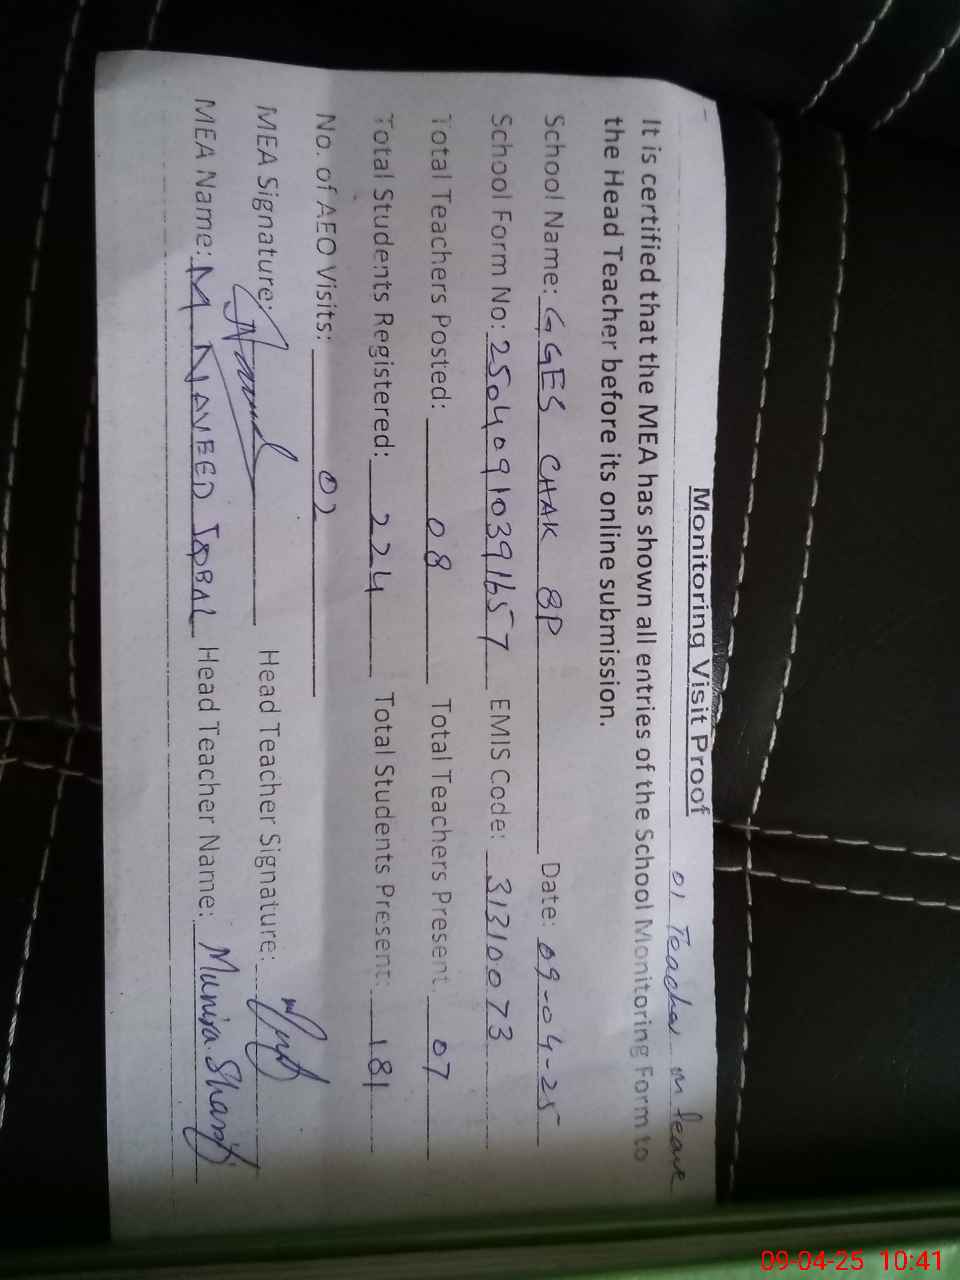 Monitoring Visit Proof
01 Teacher on leave
It is certified that the MEA has shown all entries of the School Monitoring Form to
the Head Teacher before its online submission.
School Name: GGES CHAK 8P Date: 09-04-25
School Form No: 25040910391657 EMIS Code: 31310073
Total Teachers Posted: 08 Total Teachers Present 07
Total Students Registered: 224 Total Students Present: 181
No. of AEO Visits: 02
MEA Signature: Head Teacher Signature:
MEA Name: M NAVEED IQBAL Head Teacher Name: Munira Sharif
09-04-25 10:41